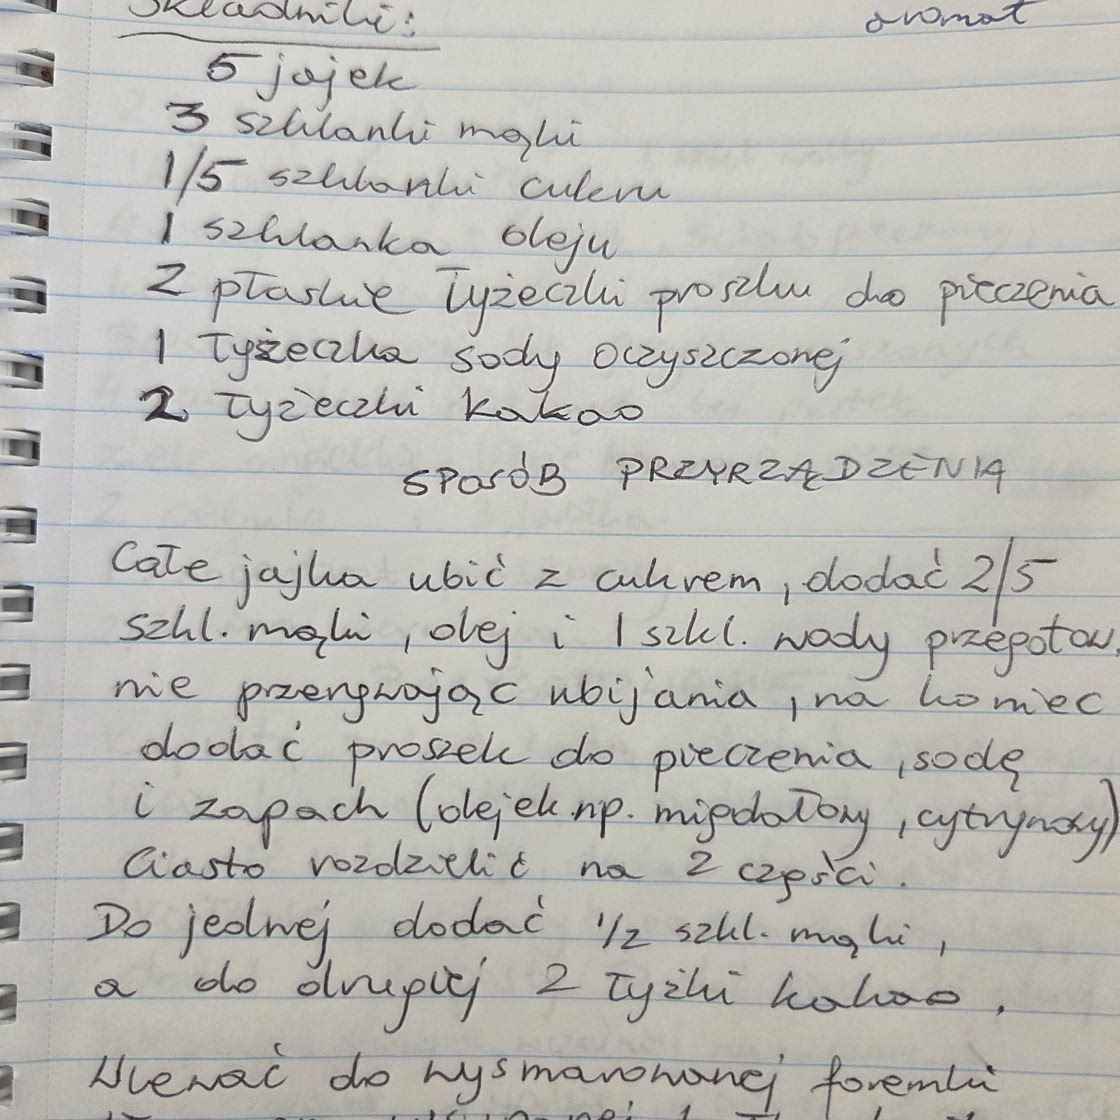 Składniki: aromat
5 jajek
3 szklanki mąki
1/5 szklanki cukru
1 szklanka oleju
2 płaskie łyżeczki proszku do pieczenia
1 łyżeczka sody oczyszczonej
2 łyżeczki kakao
SPOSÓB PRZYRZĄDZENIA
Całe jajka ubić z cukrem, dodać 2/5
szkl. mąki, olej i 1 szkl. wody przegotow.
nie przerywając ubijania, na koniec
dodać proszek do pieczenia, sodę
i zapach (olejek np. migdałowy, cytrynowy)
Ciasto rozdzielić na 2 części.
Do jednej dodać 1/2 szkl. mąki,
a do drugiej 2 łyżki kakao.
Wlewać do wysmarowanej foremki